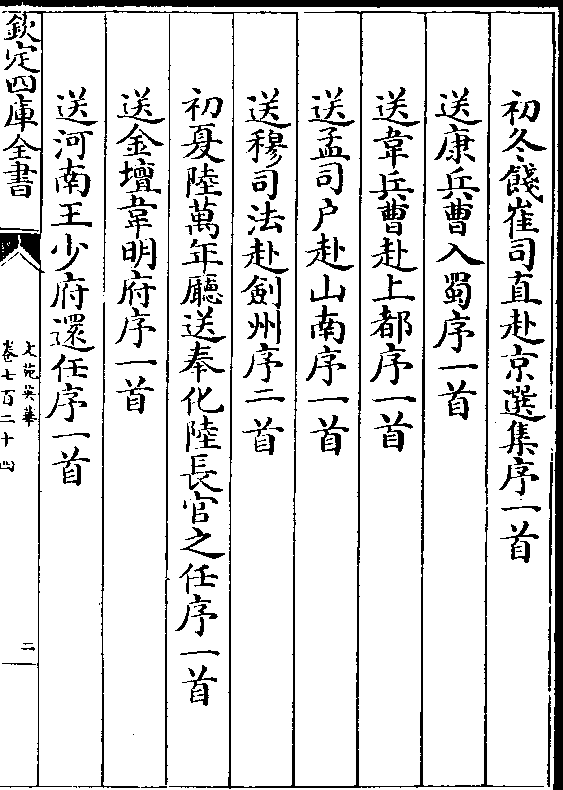 初冬餞崔司直赴京選集序一首
送康兵曹入蜀序一首
送韋兵曹赴上都序一首
送孟司户赴山南序一首
送穆司法赴劍州序二首
初夏陸萬年廳送奉化陸長官之任序一首
送金壇韋明府序一首
送河南王少府還任序一首
欽定四庫全書
文苑英華
卷七百二十四
二